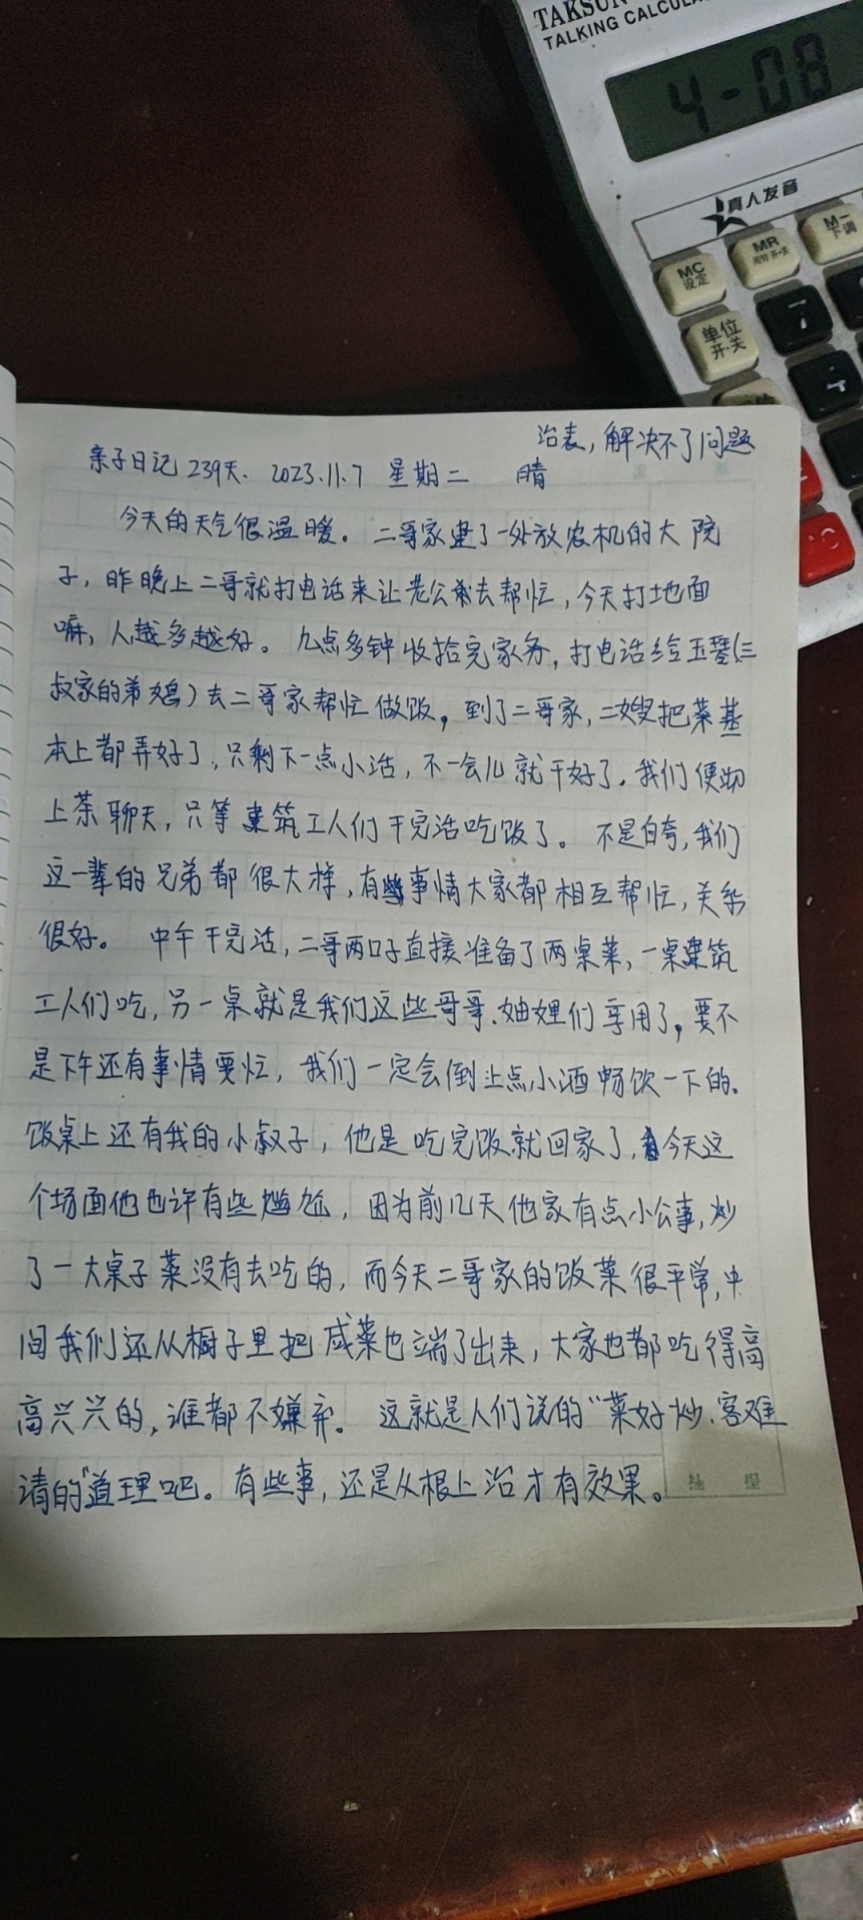 TAKSUN
TALKING CALCULA
4-08
真人发音
MC
设定
MR
M-
下调
单位
开·关
7
4
治表，解决不了问题
亲子日记 239天. 2023.11.7 星期二 晴
今天的天气很温暖。二哥家建了一处放农机的大院
子，昨晚上二哥就打电话来让老公去帮忙，今天打地面
嘛，人越多越好。九点多钟收拾完家务，打电话给玉琴(三
叔家的弟媳）去二哥家帮忙做饭，到了二哥家，二嫂把菜基
本上都弄好了，只剩下一点小活，不一会儿就干好了。我们便沏
上茶聊天，只等建筑工人们干完活吃饭了。不是自夸，我们
这一辈的兄弟都很大样，有些事情大家都相互帮忙，关系
很好。中午干完活，二哥两口子直接准备了两桌菜，一桌建筑
工人们吃，另一桌就是我们这些哥哥、妯娌们享用了，要不
是下午还有事情要忙，我们一定会倒上点小酒畅饮一下的.
饭桌上还有我的小叔子，他是吃完饭就回家了，今天这
个场面他也许有些尴尬，因为前几天他家有点小公事，炒
了一大桌子菜没有去吃的，而今天二哥家的饭菜很平常，中
间我们还从橱子里把咸菜也端了出来，大家也都吃得高
高兴兴的，谁都不嫌弃。这就是人们说的“菜好炒、客难
请的”道理吧。有些事，还是从根上治才有效果。